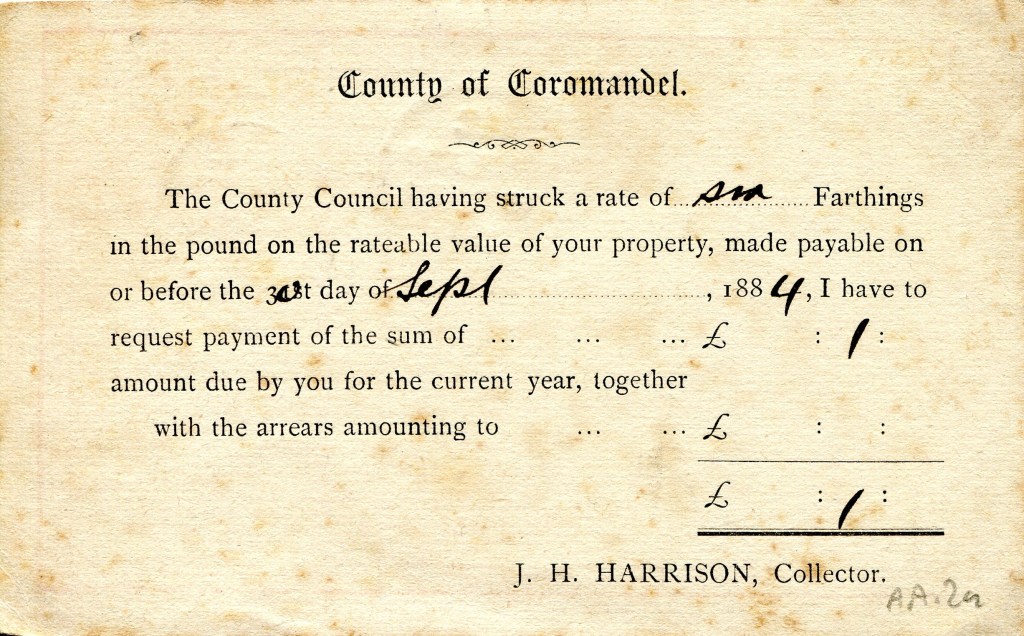 County of Coromandel.
The County Council having struck a rate of six Farthings
in the pound on the rateable value of your property, made payable on
or before the 30st day of Sept, 1884, I have to
request payment of the sum of ... ... ... £ : 1 :
amount due by you for the current year, together
with the arrears amounting to ... ... £ : :
£ : 1 :
J. H. HARRISON, Collector.